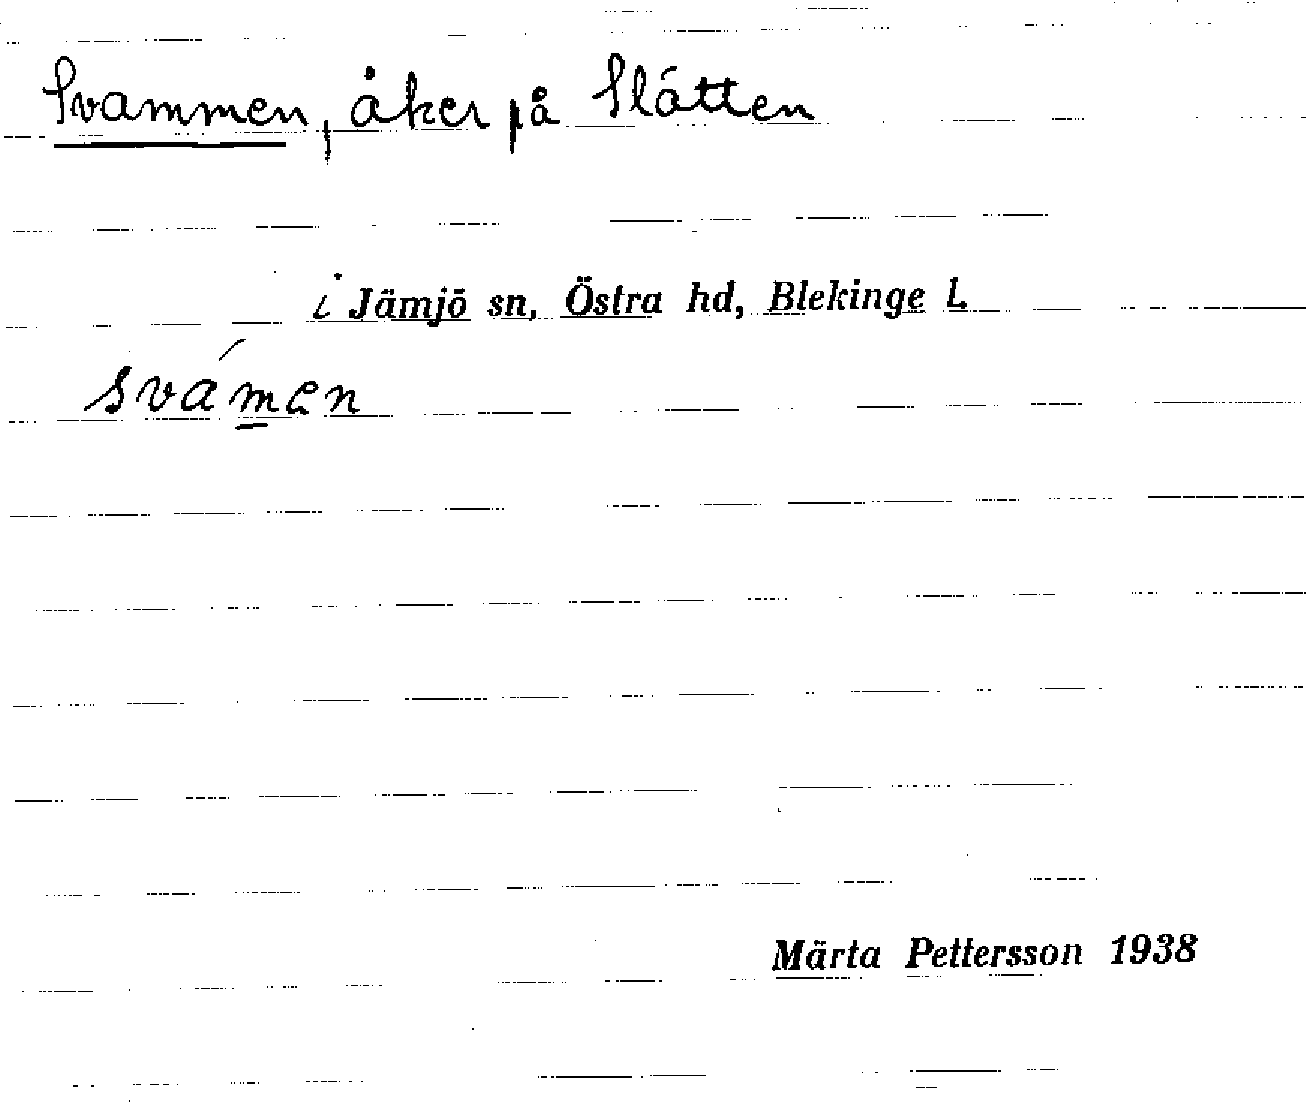 Svammen, åker på Slätten
i Jämjö sn, Östra hd, Blekinge L.
svámen
Märta Pettersson 1938